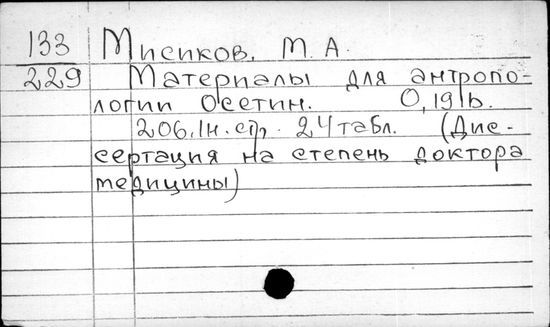 133 Мисиков. М. А.
229 Материалы для антропо-
логии Осетин. О, 191ь.
206, 1н. стр. 24 табл. (Дис-
сертация на степень доктора
медицины)